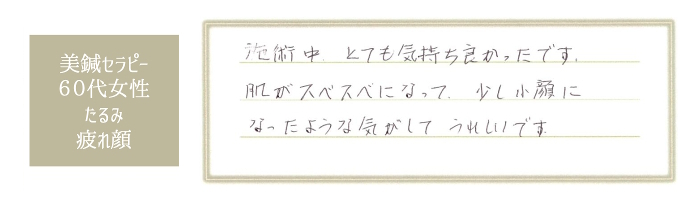 美鍼セラピー
60代女性
たるみ
疲れ顔
施術中、とても気持ち良かったです。
肌がスベスベになって、少し小顔に
なったような気がして うれしいです。